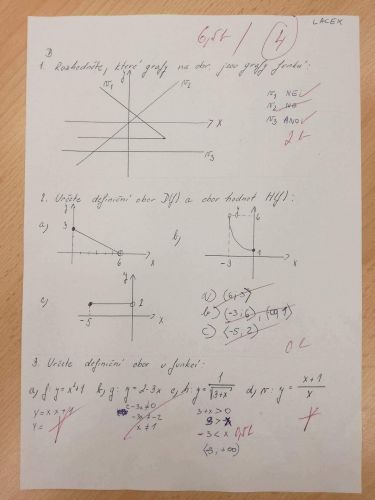 LACEK
6,5b / 4
B
1. Rozhodněte, které grafy na obr. jsou grafy funkcí:
y
N1 N2
N1 NE
N2 NE
x
N3 ANO
N3
2b
2. Určete definiční obor D(f) a obor hodnot H(f):
a) y 3 6 x
b) y 6 1 -3 x
c) y 2 -5 x
a) (6,3)
b) (-3,6), (0,1)
c) (-5,2)
0b
3. Určete definiční obor u funkcí:
a) f: y=x²+1 b) g: y=2-3x c) h: y=1/√(3+x) d) r: y=(x+1)/x
y=x x+1
y=
2-3x≠0
-3x≠-2
x≠1
3+x>0
3>-x
-3<x
(-3,+∞)